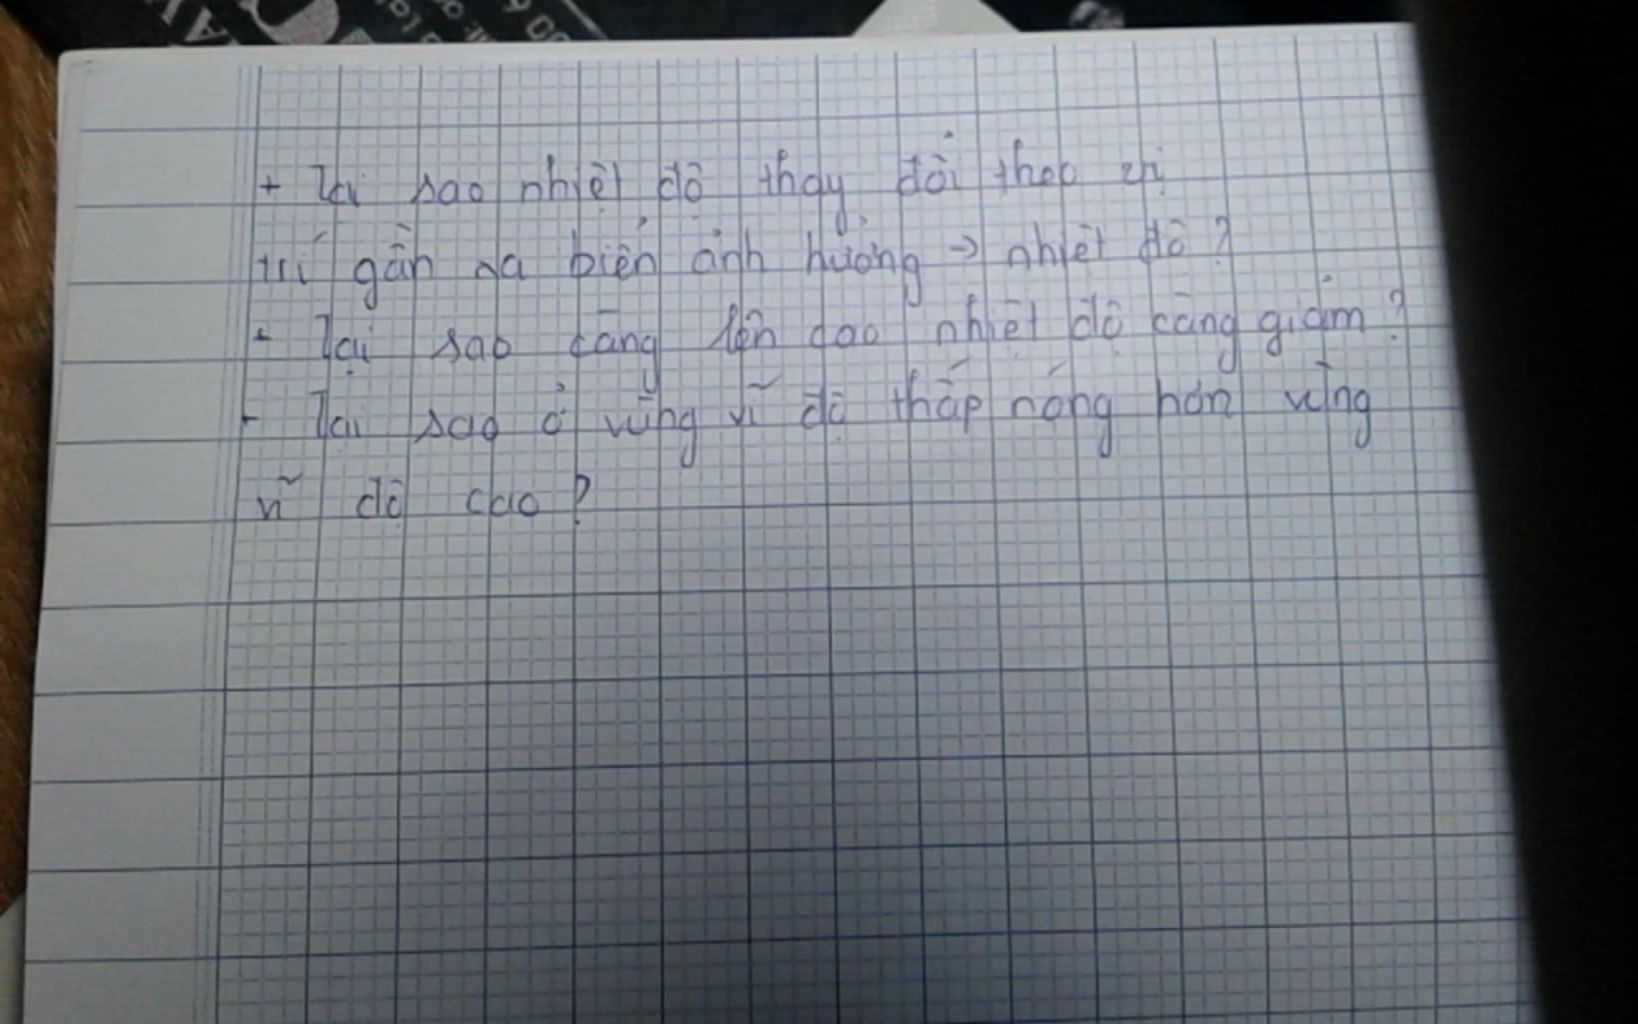 + Tại sao nhiệt độ thay đổi theo vị
trí gần xa biển ảnh hưởng → nhiệt độ?
+ Tại sao càng lên cao nhiệt độ càng giảm?
+ Tại sao ở vùng vĩ độ thấp nóng hơn vùng
vĩ độ cao?